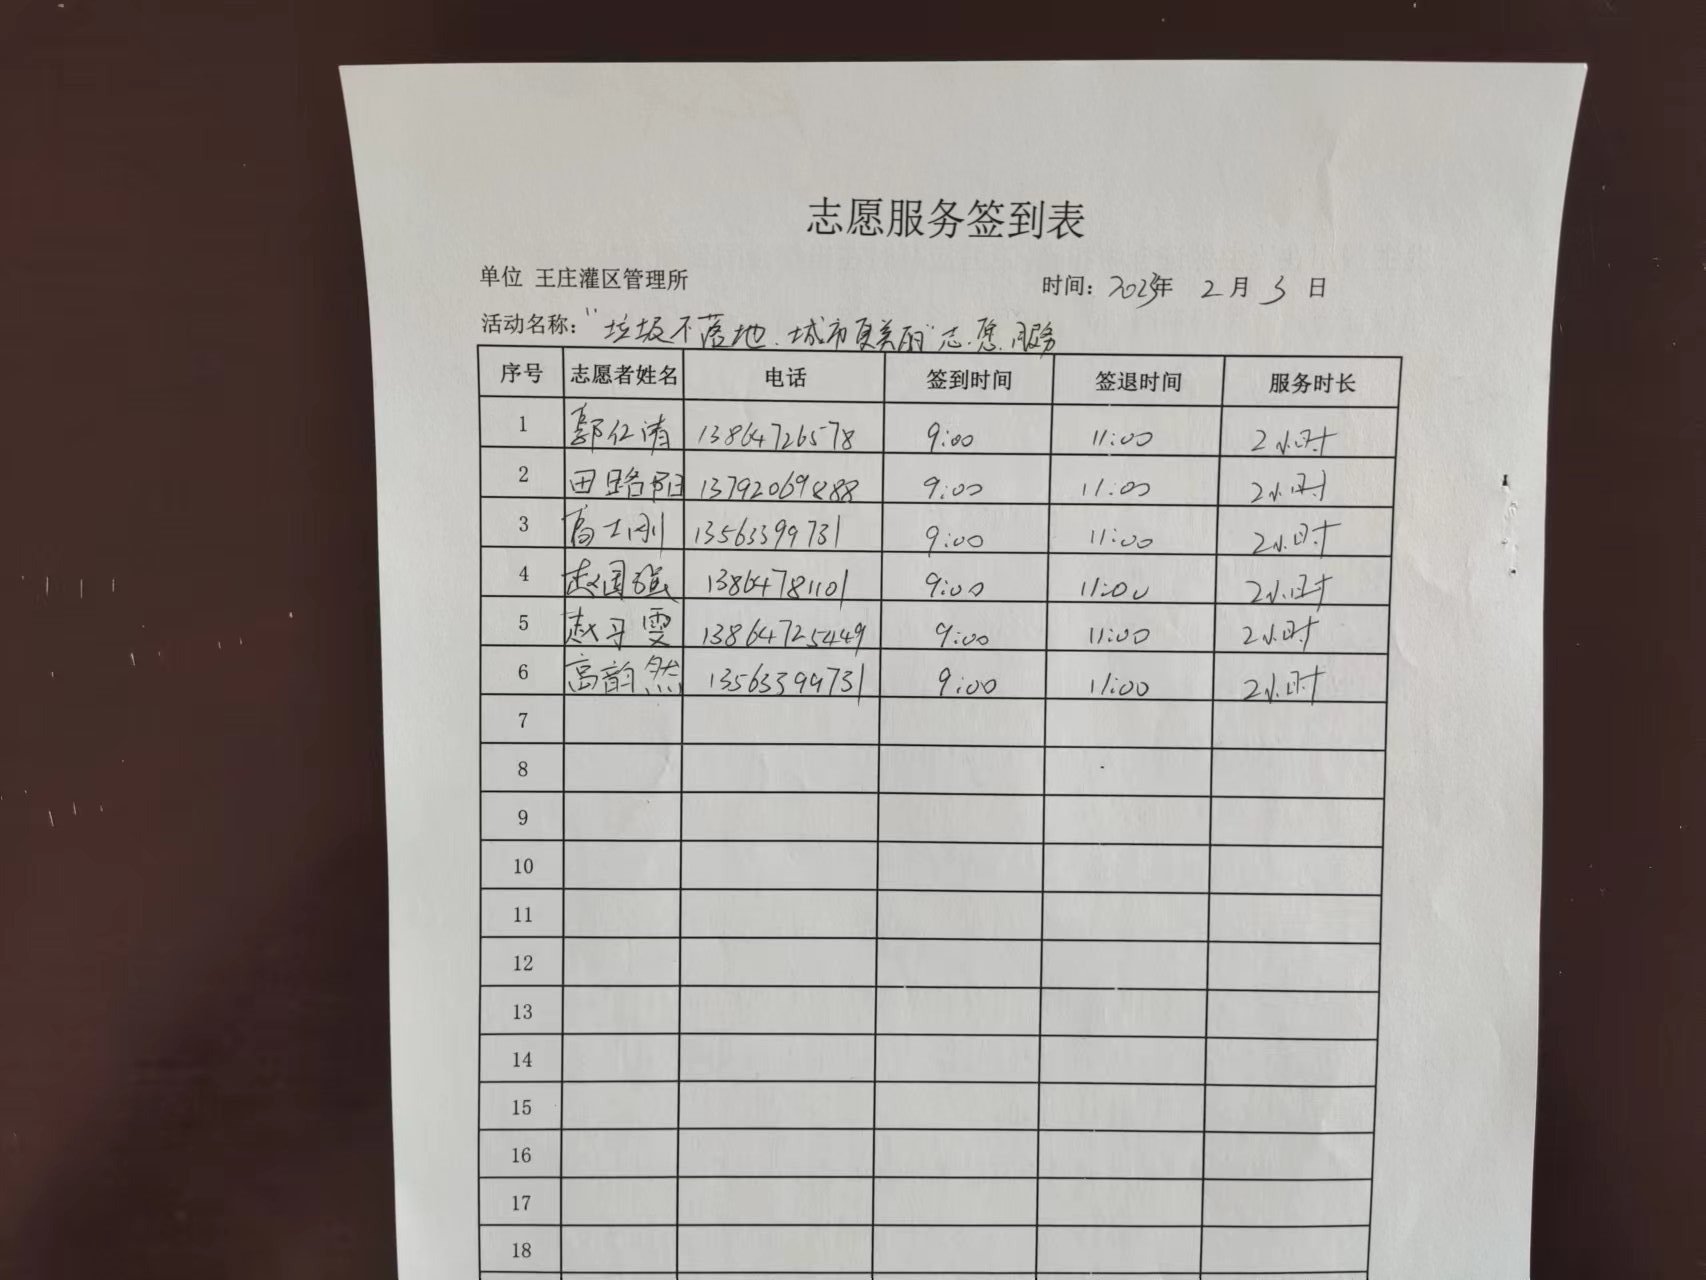 志愿服务签到表
单位 王庄灌区管理所 时间：2023年 2 月 3 日
活动名称："垃圾不落地.城市更美丽"志愿服务
序号 志愿者姓名 电话 签到时间 签退时间 服务时长
1 郭仁涛 13864726578 9:00 11:00 2小时
2 田路阳 13792069888 9:00 11:00 2小时
3 高士刚 13563399731 9:00 11:00 2小时
4 赵国强 13864781101 9:00 11:00 2小时
5 赵子雯 13864725449 9:00 11:00 2小时
6 高韵然 13563399731 9:00 11:00 2小时
7
8
9
10
11
12
13
14
15
16
17
18